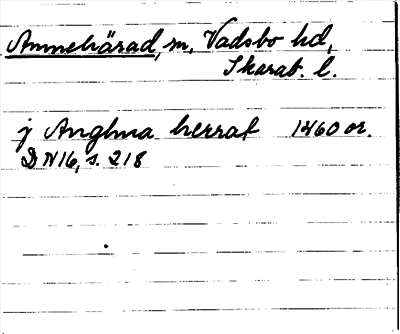 Amnehärad, m, Vadsbo hd,
Skarab. l.
j Anghna herrat 1460 or.
DN 16, s. 218